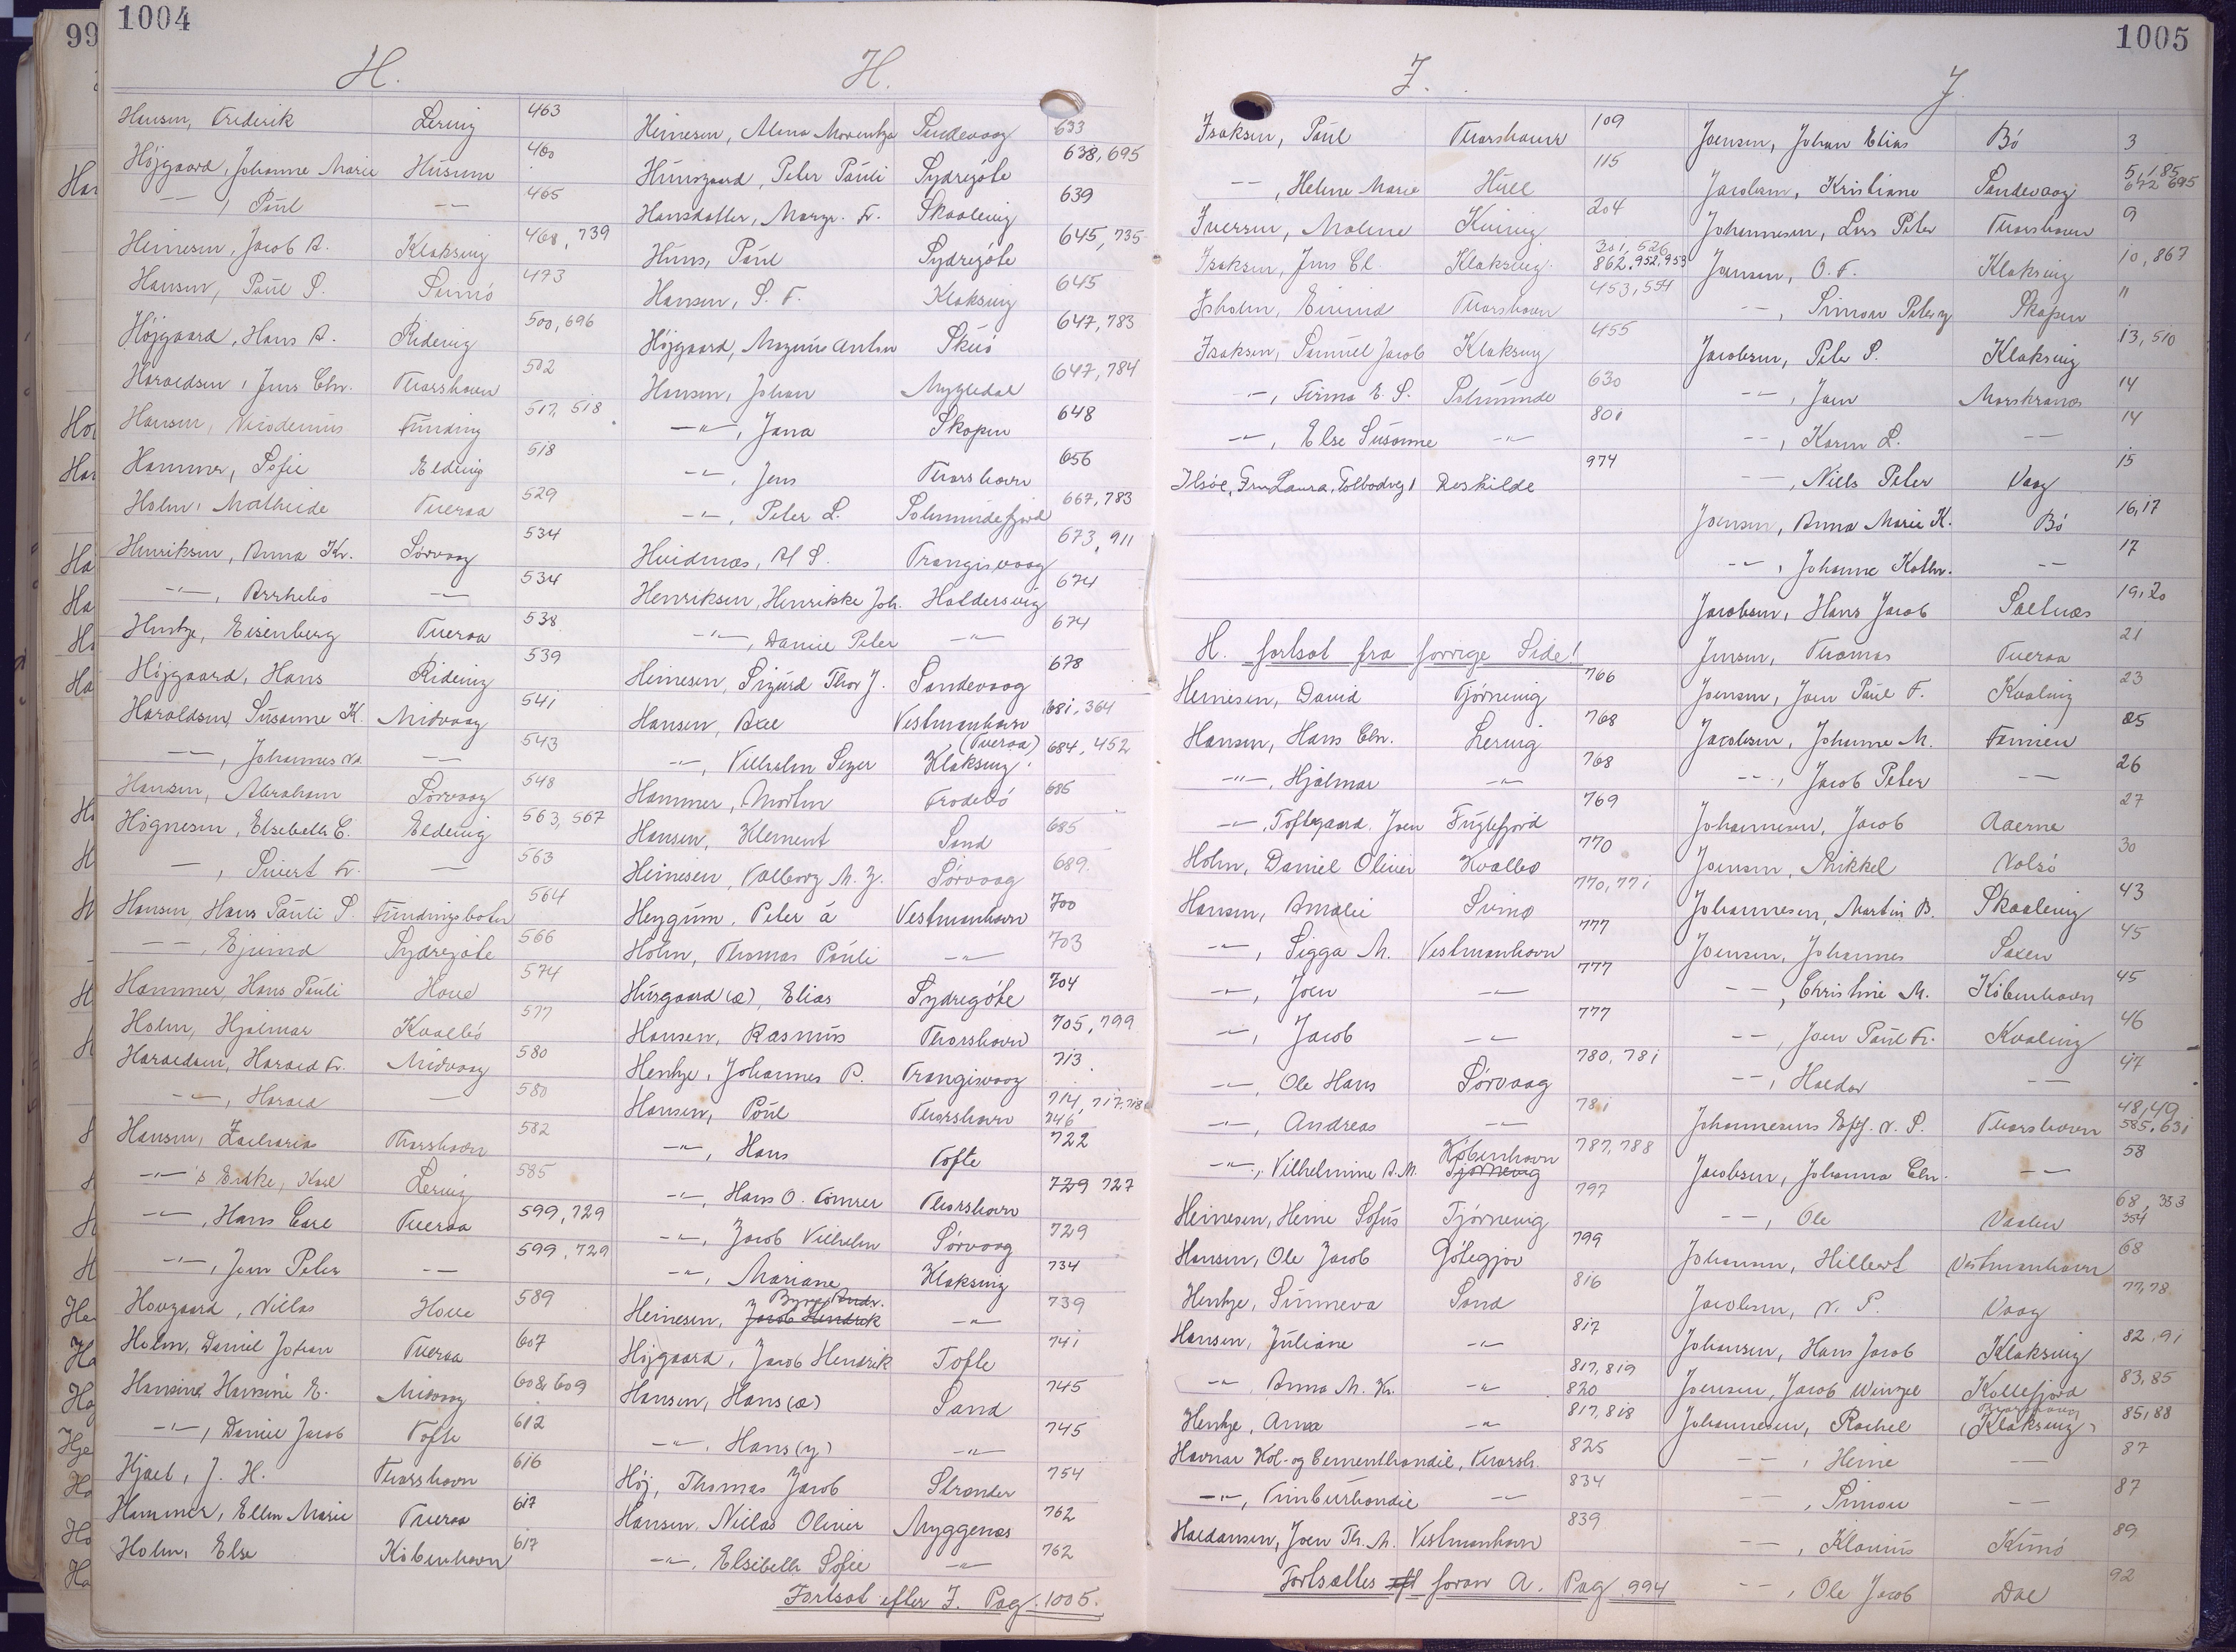 99
1004
H.
Hansen, Frederik Lervig 463
Højgaard, Johanne Marie Husum 460
-"-, Poul -"- 465
Heinesen, Jacob A. Klaksvig 468, 739
Hansen, Poul S. Sumø 473
Højgaard, Hans A. Ridevig 500, 696
Haraldsen, Jens Chr. Thorshavn 502
Hansen, Nicodemus Funding 517, 518
Hammer, Sofie Eldevig 518
Holm, Mathilde Tveraa 529
Henriksen, Anna Kr. Sørvaag 534
-"-, Arrhebo -"- 534
Hentze, Eisenberg Tveraa 538
Højgaard, Hans Ridevig 539
Haraldsen, Susanne K. Midvaag 541
-"-, Johannes -"- 543
Hansen, Abraham Sørvaag 548
Høgnesen, Elsebeth C. Eldevig 563, 567
-, Sivert Fr. - 563
Hansen, Hans Pauli S. Fundingsbotn 564
-"-, Ejvind Sydregøte 566
Hammer, Hans Pauli Hove 574
Holm, Hjalmar Kvalbø 577
Haraldsen, Harald Fr. Midvaag 580
-"-, Harald - 580
Hansen, Zacharias Thorshavn 582
-"-'s Enke, Karl Lervig 585
-"-, Hans Carl Tveraa 599, 729
-"-, Jens Peter -"- 599, 729
Hovgaard, Niclas Hove 589
Holm, Daniel Johan Tveraa 607
Hansine E. Midvaag 608, 609
-"-, Daniel Jacob Tofte 612
Hjael, J. H. Thorshavn 616
Hammer, Ellen Marie Tveraa 617
Holm, Else Kóbenhavn 617
H.
Heinesen, Alma Sandevaag 633
Hunsgaard, Peter Pauli Sydregøte 638, 695
Hansdatter, Margr. Fr. Skaalevig 639
Huns, Poul Sydregøte 645, 735
Hansen, S. F. Klaksvig 645
Højgaard, Magnus Anton Skuø 647, 783
Hansen, Johan Mygledal 647, 784
-"-, Jana Skopun 648
-"-, Jens Thorshavn 656
-"-, Peter L. Solmundefjord 667, 783
Hvidnæs, H S. Trangisvaag 673, 911
Henriksen, Henrikke Joh. Haldersvig 674
-"-, Daniel Peter -"- 674
Heinesen, Sigurd Thor J. Sandevaag 678
Hansen, Axel Vestmanhavn 681, 364
-"-, Vilhelm Sezer (Tveraa) Klaksvig 684, 452
Hammer, Morten Frodebó 685
Hansen, Klement Sand 685
Heinesen, Valborg M. J. Sørvaag 689
Heygum, Peter á Vestmanhavn 700
Holm, Thomas Pauli -"- 703
Husgaard (æ), Elias Sydregøte 704
Hansen, Rasmus Thorshavn 705, 799
Hentze, Johannes P. Trangisvaag 713
Hansen, Poul Thorshavn 714, 717, 718 746
-"-, Hans Tofte 722
-"-, Hans O. Tømrer Thorshavn 729 727
-"-, Jacob Vilhelm Sørvaag 729
-"-, Mariane Klaksvig 734
Heinesen, Jacob Hendrik Andr. -"- 739
Højgaard, Jacob Hendrik Tofte 741
Hansen, Hans (æ) Sand 745
-"-, Hans (y) -"- 745
Høj, Thomas Jacob Strander 754
Hansen, Niclas Olivier Myggenæs 762
-"-, Elsebeth Sofie -"- 762
Fortsat efter I. Pag. 1005.
1005
I.
Isaksen, Poul Thorshavn 109
-"-, Helene Marie Hull 115
Iversen, Malene Kvivig 204
Isaksen, Jens Cl. Klaksvig 301, 526 862, 952, 953
Isholm, Eivind Thorshavn 453, 554
Isaksen, Samuel Jacob Klaksvig 455
-"-, Firma E. S. Solmunde 630
-"-, Else Susanne -"- 801
Ilsöe, Fru Laura, Tolbodvej 1 Roskilde 974
H. fortsat fra forrige Side!
Heinesen, David Tjørnevig 766
Hansen, Hans Chr. Lervig 768
-"-, Hjalmar -"- 768
-"-, Toftegaard, Joen Fuglefjord 769
Holm, Daniel Olivier Kvalbø 770
Hansen, Amalie Svinø 770, 771
-"-, Sigga M. Vestmanhavn 777
-"-, Joen -"- 777
-"-, Jacob -"- 777
-"-, Ole Hans Sørvaag 780, 781
-"-, Andreas -"- 781
-"-, Vilhelmine A. M. København Tjørnevig 787, 788
Heinesen, Heine Sofus Tjørnevig 797
Hansen, Ole Jacob Gøtegjov 799
Hentze, Sunneva Sand 816
Hansen, Juliane -"- 817
-"-, Anna M. Kr. -"- 817, 819 820
Hentze, Anna -"- 817, 818
Havnar Kol- og Cementhandil, Thorsh. 825
-"-, Timburhandil -"- 834
Haldansen, Joen Th. M. Vestmanhavn 839
Fortsættes foran A. Pag. 994
J.
Joensen, Johan Elias Bø 3
Jacobsen, Kristiane Sandevaag 5, 185 672 695
Johannesen, Lars Peter Thorshavn 9
Joensen, O. F. Klaksvig 10, 867
-"-, Simon Peter y Skopun 11
Jacobsen, Peter S. Klaksvig 13, 510
-"-, Joen Morskranes 14
-"-, Karen L. -"- 14
-"-, Niels Peter Vaag 15
Joensen, Anna Marie K. Bø 16, 17
-"-, Johanne Kathr. -"- 17
Jacobsen, Hans Jacob Saltnæs 19, 20
Jensen, Thomas Tveraa 21
Joensen, Joen Poul F. Kvalvig 23
Jacobsen, Johanne M. Famien 25
-"-, Jacob Peter -"- 26
Johannesen, Jacob Aaerne 27
Joensen, Mikkel Nolsø 30
Johannesen, Martin B. Skaalevig 43
Joensen, Johannes Saxen 45
-"-, Christine M. Kóbenhavn 45
-"-, Joen Poul Fr. Kvalvig 46
-"-, Haldor -"- 47
Johannesens Eftf. N. P. Thorshavn 48, 49 585, 631
Jacobsen, Johanna Chr. -"- 58
-"-, Ole Vaalen 68, 353 354
Johansen, Hilbert Vestmanhavn 68
Jacobsen, N. P. Vaag 77, 78
Johansen, Hans Jacob Klaksvig 82, 91
Joensen, Jacob Winzel Kollefjord 83, 85
Johannesen, Rachel (Klaksvig) 85, 88
-"-, Heine -"- 87
-"-, Simon -"- 87
-"-, Klæmus Kunø 89
-"-, Ole Jacob Dal 92